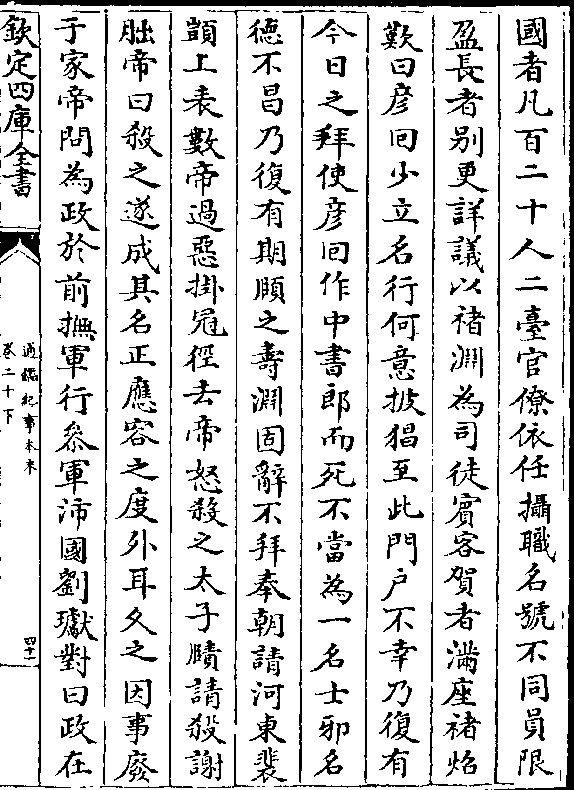 國者凡百二十人二臺官僚依任攝職名號不同員限
盈長者别更詳議以褚淵為司徒賓客賀者滿座褚炤
歎曰彦回少立名行何意披猖至此門户不幸乃復有
今日之拜使彦回作中書郎而死不當為一名士邪名
徳不昌乃復有期頤之壽淵固辭不拜奉朝請河東裴
顗上表數帝過惡掛冠徑去帝怒殺之太子賾請殺謝
朏帝曰殺之遂成其名正應容之度外耳久之因事廢
于家帝問為政於前撫軍行叅軍沛國劉瓛對曰政在
欽定四庫全書
通鑑紀事本末
卷二十下
四十一